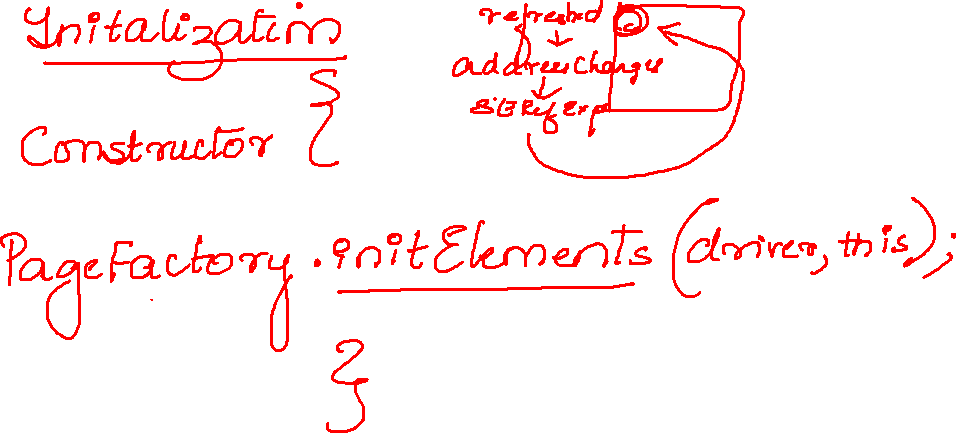 Initalization
{
Constructor {
refreshed
address changes
StERefExp
PageFactory.initElements(driver,this);
}